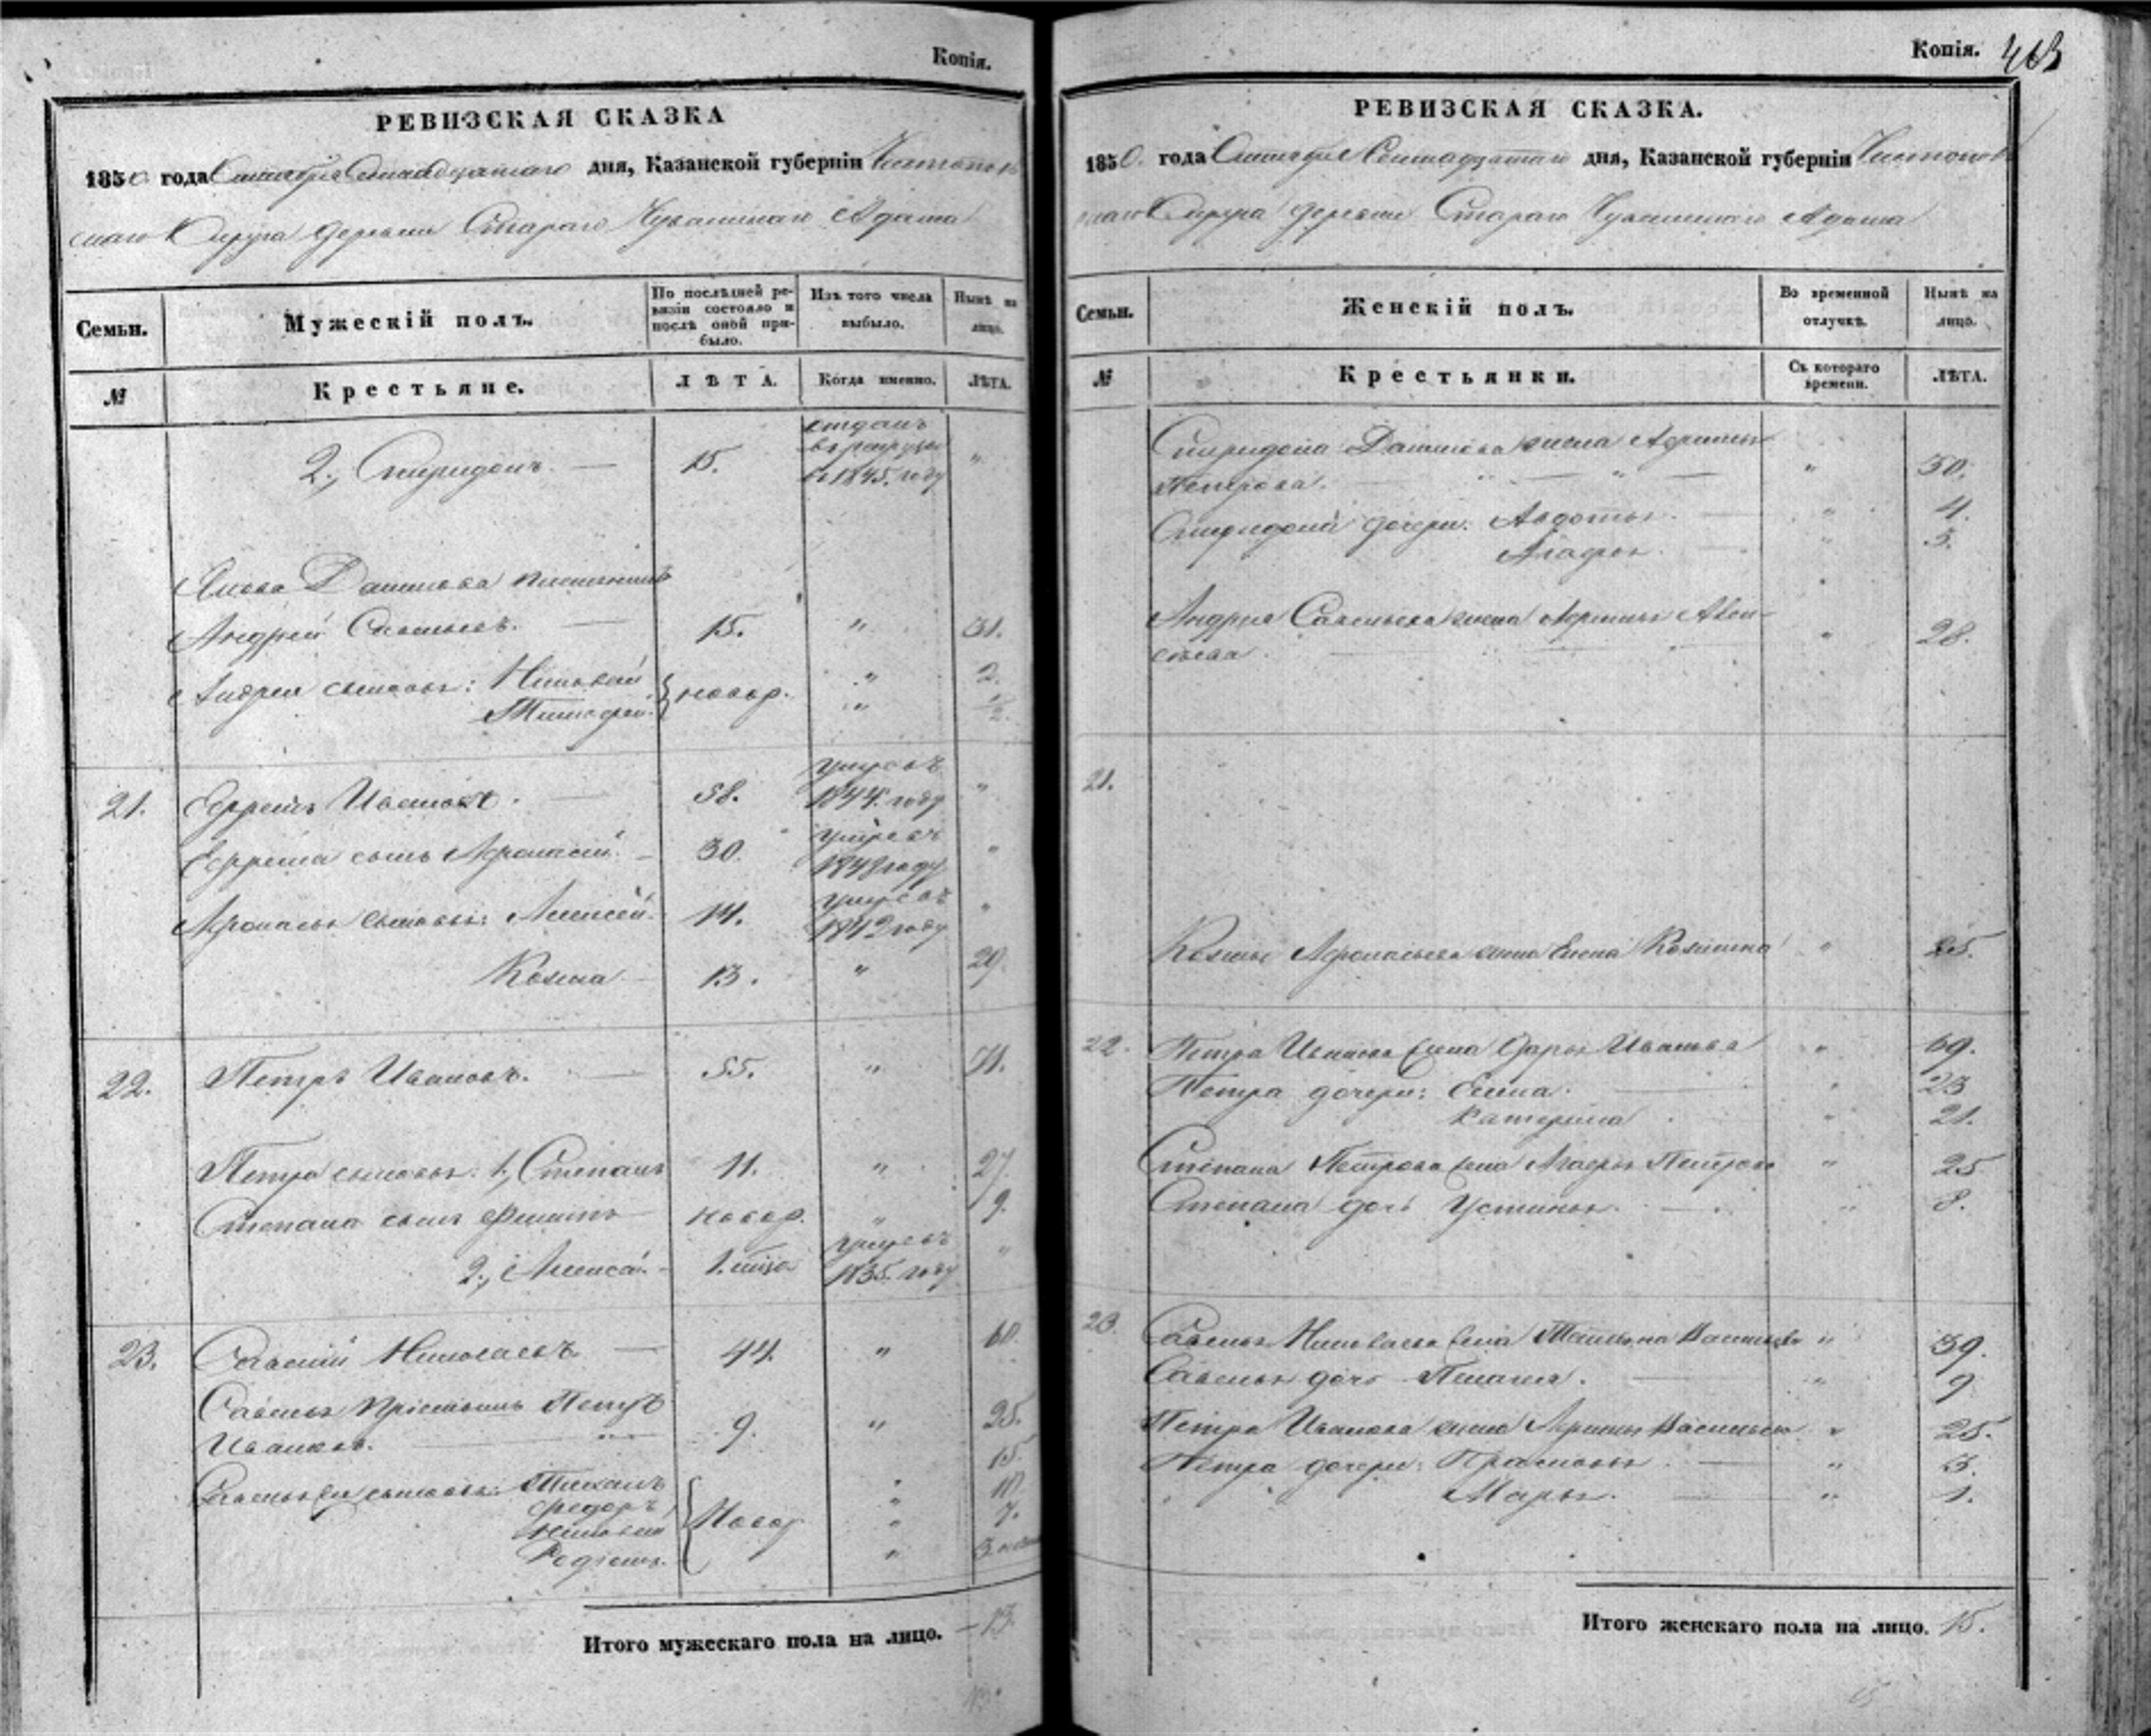 Копія.
РЕВИЗСКАЯ СКАЗКА
1850 года Сентября Семнадцатаго дня, Казанской губерніи Чистополь
скаго Округа деревни Стараго Чувашскаго Адама
Семьи.
Мужескій полъ.
По послѣдней ре-
визіи состояло и
послѣ оной при-
было.
Изъ того числа
выбыло.
Нынѣ на
лицо.
№
Крестьяне.
ЛѢТА.
Когда именно.
ЛѢТА.
2., Спиридонъ. — 15. отданъ
въ рекруты
въ 1845. году "
Якова Данилова племянникъ
Андрей Савельевъ. — 15. " 31.
Андрея сыновья: Николай } новор. " 2.
Тимофей. " 1/2.
21. Ефремъ Ивановъ. — 58. умре въ
1844. году "
Ефрема сынъ Афонасий. — 30. умре въ
1848 году "
Афонасья сыновья: Алексей. 14. умре въ
1842 году "
Козма — 13. " 29.
22. Петръ Ивановъ. — 55. " 71.
Петра сыновья: 1., Степанъ 11. " 27.
Степана сынъ Филипъ новор. " 9.
2., Алексей. 1. умре въ
1835. году "
23. Савелий Николаевъ — 44. " 60.
Савелья приемышъ Петръ
Ивановъ. — 9. " 25.
Савелья сыновья: Тихонъ " 15.
Федоръ " 10.
Николай } Новор " 7.
Родионъ. "
Итого мужескаго пола на лицо. — 13.
13.
Копія. 463
РЕВИЗСКАЯ СКАЗКА.
1850. года Сентября Семнадцатаго дня, Казанской губерніи Чистополь
скаго Округа деревни Стараго Чувашскаго Адама
Семьи.
Женскій полъ.
Во временной
отлучкѣ.
Нынѣ на
лицо.
№
Крестьянки.
Съ котораго
времени.
ЛѢТА.
Спиридона Данилова жена Афимья
Петрова. — " 30.
Спиридона дочери: Авдотья. — " 4.
Агафья. — " 3.
Андрея Савельева жена Афимья Алек-
сѣева. — " 28.
21.
Козмы Афонасьева жена Елена Козмина " 25.
22. Петра Иванова жена Дарья Иванова " 69.
Петра дочери: Елена. — " 23
Катерина " 21.
Степана Петрова жена Агафья Петрова " 25
Степана дочь Устинья. — " 8.
23. Савелья Николаева жена Татьяна Васильева " 39.
Савелья дочь Пелагея. — " 9
Петра Иванова жена Ирина Васильева " 25.
Петра дочери: Прасковья. — " 3.
Марья. — " 1.
Итого женскаго пола на лицо. 15.
15